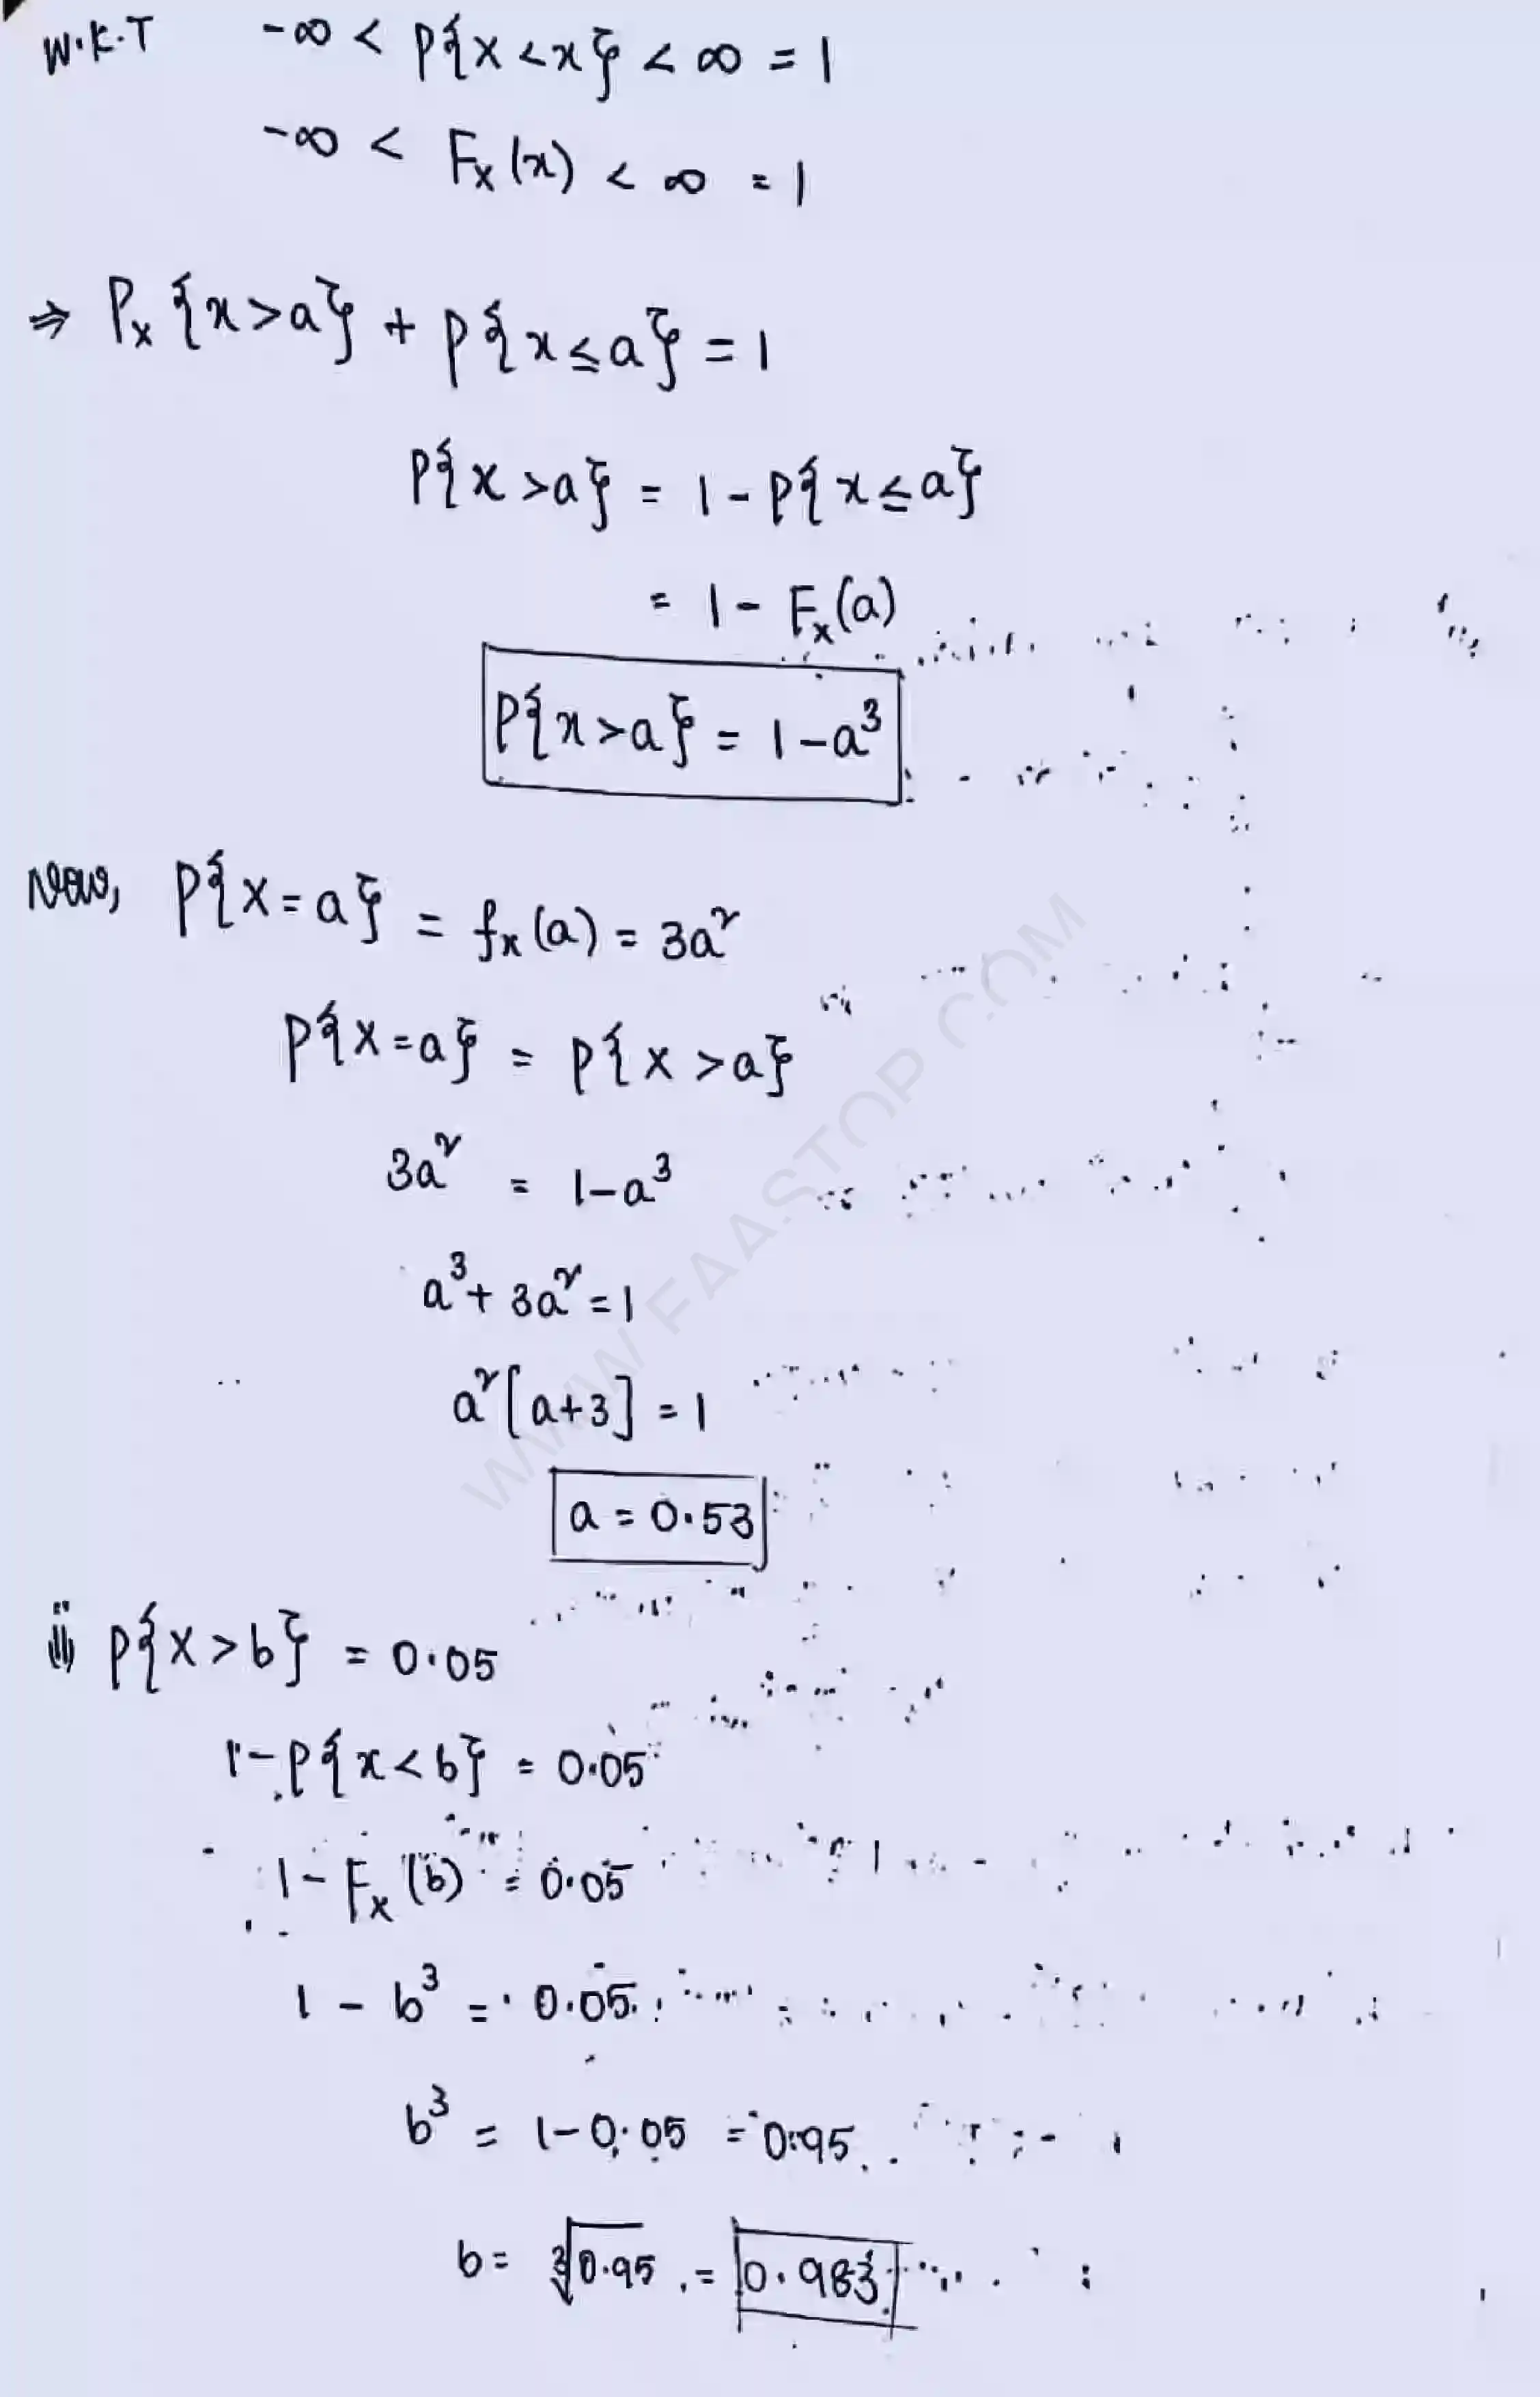 W.K.T -∞ < P{X<x} < ∞ = 1
-∞ < Fx(x) < ∞ = 1
⇒ Px{x>a} + P{x≤a} = 1
P{x>a} = 1 - P{x≤a}
= 1 - Fx(a)
P{x>a} = 1-a³
Now, P{X=a} = fx(a) = 3a²
P{X=a} = P{X>a}
3a² = 1-a³
a³+3a²=1
a²[a+3]=1
a = 0.53
ii) P{X>b} = 0.05
1-P{x<b} = 0.05
1-Fx(b) = 0.05
1 - b³ = 0.05
b³ = 1-0.05 = 0.95
b = ∛0.95 = 0.983
WWW.FAASTOP.COM